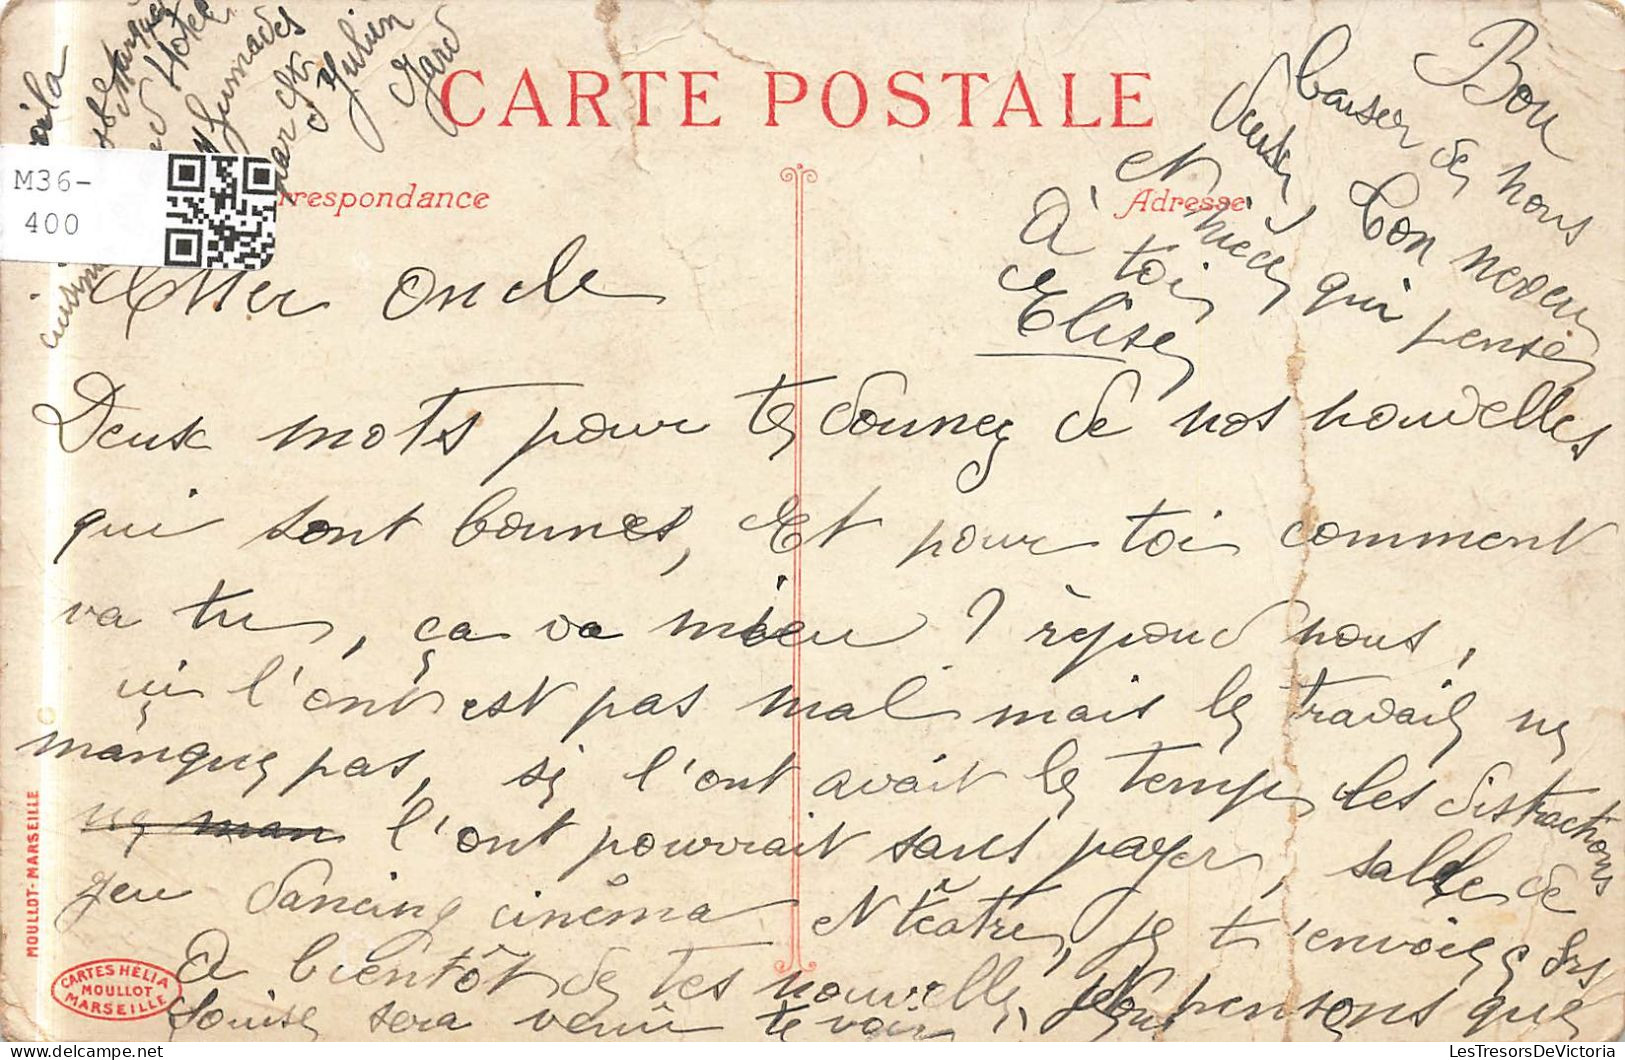 CARTE POSTALE
M36-
400
rrespondance
Adresse
Cher oncle
Deux mots pour te donner de nos nouvelles
qui sont bonnes, Et pour toi comment
va tu, ça va mieu ? répond nous,
ici l'ont est pas mal mais le travail ne
manque pas, si l'ont avait le temps les distractions
ne man l'ont pourrait sans payer, salle de
jeu dancing cinéma et téatre, je t'envoie
A bientôt de tes nouvelle, Nous pensons que
Louise sera venu te voir
Bon
baiser de nous
toutes
ton neveu
Et nièce qui pense
À toi
Elise
voila
Hotel
Fumades
par St
Julien
Gard
MOULLOT-MARSEILLE
CARTES HÉLIA
MOULLOT
MARSEILLE
LesTresorsDeVictoria